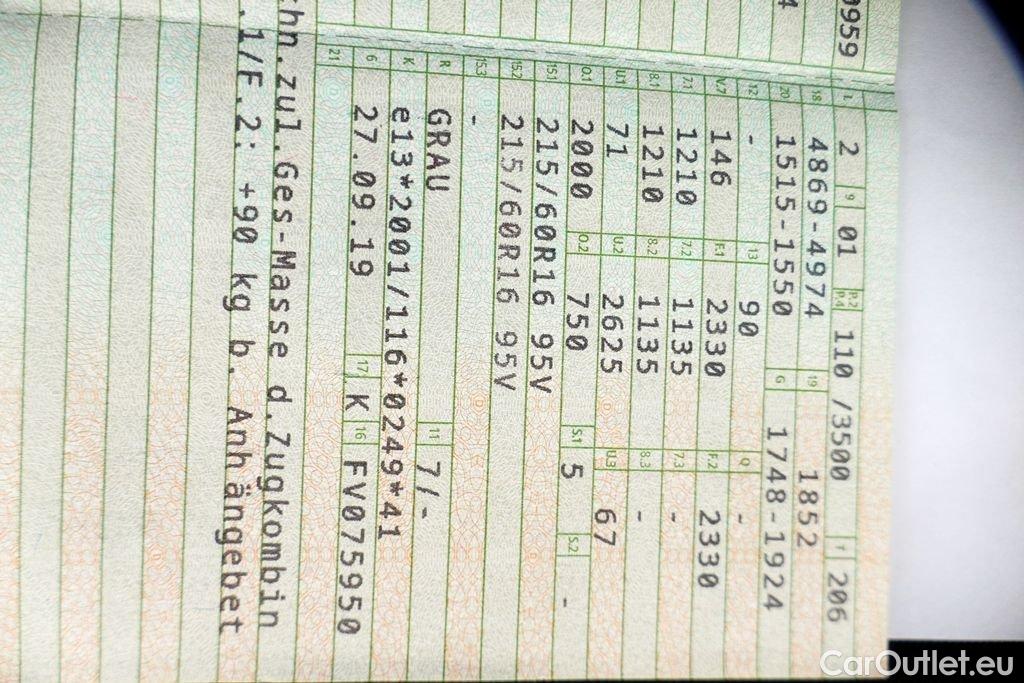 0959
L 2 9 01 P.2 P.4 110 /3500 T 206
18 4869-4974 19 1852
20 1515-1550 G 1748-1924
12 - 13 90 Q -
V.7 146 F.1 2330 F.2 2330
7.1 1210 7.2 1135 7.3 -
8.1 1210 8.2 1135 8.3 -
U.1 71 U.2 2625 U.3 67
O.1 2000 O.2 750 S.1 5 S.2 -
15.1 215/60R16 95V
15.2 215/60R16 95V
15.3 -
R GRAU 11 7/-
K e13*2001/116*0249*41
6 27.09.19 17 K 16 FV075950
21
chn.zul.Ges-Masse d.Zugkombin
.1/F.2: +90 kg b. Anhängebet
CarOutlet.eu